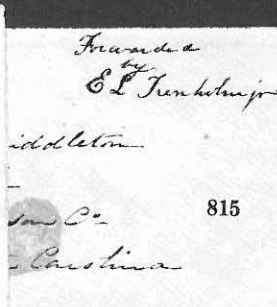 Forwarded
by
E L Trenholm jr
iddleton
Co
815
Carolina